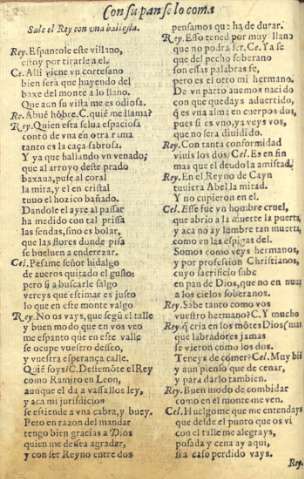 Con su pan se lo coma.
Sale el Rey con vna ballesta.
Rey. Espantose este villano,
estoy por tirarle a el.
Ce. Alli viene vn cortesano
bien serà que huyendo del
baxe del monte a lo llano.
Que aun su vista me es odiosa.
Re. A buẽ hõbre. C. quiẽ me llama?
Rey. Quien esta selua espaciosa
contò de vna en otra rama
tanto es la caça sabrosa.
Y ya que hallando vn venado;
que al arroyo deste prado
baxaua, puse al coral
la mira, y el en cristal
tuuo el hozico bañado.
Dandole el ayre al passar
ha medido con tal prissa
las sendas, sino es bolar,
que las flores donde pisa
se bueluen a enderezar.
Cel. Pesame señor hidalgo
de aueros quitado el gusto:
pero si a buscarle salgo
vereys que estimar es justo
lo que en este monte valgo.
Rey. No os vays, que segũ el talle
y buen modo que en vos veo
me espanto que en este valle
se ocupe vuestro desseo,
y vuestra esperança calle.
Quiẽ soys? C. Destemõte el Rey
como Ramiro en Leon,
aunque el da a vassallos ley,
y aca mi jurisdicion
se estiende a vna cabra, y buey.
Pero en razon del mandar
tengo bien gracias a Dios
quien me dessea agradar,
y con ser Reyno entre dos
pensamos que ha de durar.
Rey. Esso tened por muy llano
que no podra ser. Ce. Ya se
que del pecho soberano
son essas palabras fe,
pero es el otro mi hermano.
De vn parto auemos nacido
con que quedays aduertido,
q̃ es vna alma en cuerpos dos,
pues si es vno, ya veys vos,
que no sera diuidido.
Rey. Con tanta conformidad
viuis los dos? Cel. Es en fin
mas que el deudo la amistad.
Rey. En el Reyno de Cayn
tuuiera Abel la mitad.
Y no cupieron en el.
Cel. Esse fue vn hombre cruel,
que abrio a la muerte la puerta,
y aca no ay lambre tan muerta,
como en las espigas del.
Somos como veys hermanos,
y por profession Christianos,
cuyo sacrificio sube
en pan de Dios, que no en nuue
a los cielos soberanos.
Rey. Sabe tanto como vos
vuestro hermano? C. Y mucho
Rey. q̃ cria en los mõtes Dios (mas
que labradores jamas
se vieron como los dos.
Teneys de comer? Cel. Muy biẽ
y aun pienso que de cenar,
y para darlo tambien.
Rey. Buen modo de combidar
como en el monte me ven.
Cel. Huelgome que me entendays
que desde el punto que os vi
con el talle me alegrays,
posada y cena ay aqui,
si a caso perdido vays.
Rey.